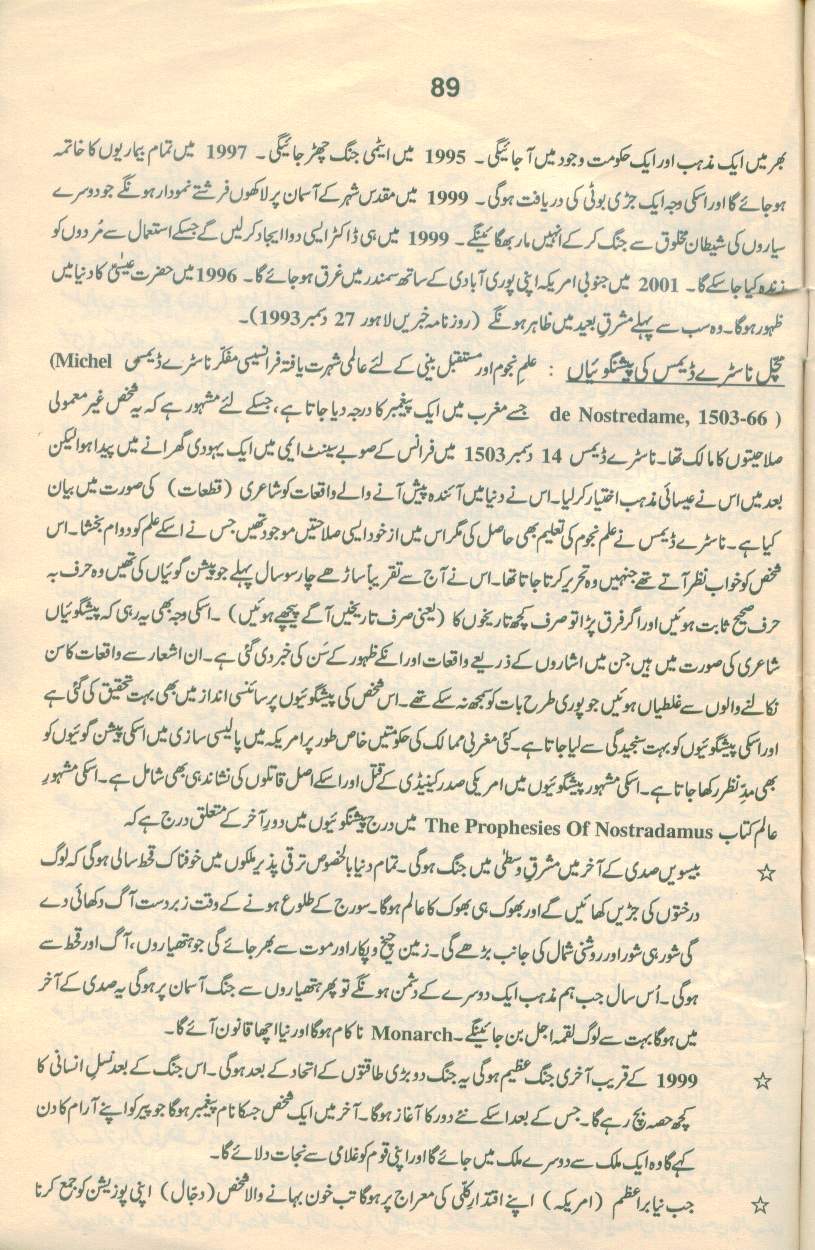 89
بھر میں ایک مذہب اور ایک حکومت وجود میں آ جائیگی ۔ 1995 میں ایٹمی جنگ چھڑ جائیگی ۔ 1997 میں تمام بیماریوں کا خاتمہ
ہو جائے گا اور اسکی وجہ ایک جڑی بوٹی کی دریافت ہوگی ۔ 1999 میں مقدس شہر کے آسمان پر لاکھوں فرشتے نمودار ہونگے جو دوسرے
سیاروں کی شیطان مخلوق سے جنگ کر کے انہیں مار بھگائینگے ۔ 1999 میں ہی ڈاکٹر ایسی دوا ایجاد کر لیں گے جسکے استعمال سے مُردوں کو
زندہ کیا جا سکے گا ۔ 2001 میں جنوبی امریکہ اپنی پوری آبادی کے ساتھ سمندر میں غرق ہو جائے گا ۔ 1996 میں حضرت عیسیٰؑ کا دنیا میں
ظہور ہوگا ۔ وہ سب سے پہلے مشرقِ بعید میں ظاہر ہونگے (روزنامہ خبریں لاہور 27 دسمبر 1993)۔
مچّل ناسٹرے ڈیمس کی پیشنگوئیاں : علمِ نجوم اور مستقبل بینی کے لئے عالمی شہرت یافتہ فرانسیسی مفکّر ناسٹرے ڈیمس (Michel
de Nostredame, 1503-66 ) جسے مغرب میں ایک پیغمبر کا درجہ دیا جاتا ہے ، جسکے لئے مشہور ہے کہ یہ شخص غیر معمولی
صلاحیتوں کا مالک تھا۔ ناسٹرے ڈیمس 14 دسمبر 1503 میں فرانس کے صوبے سینٹ ایمی میں ایک یہودی گھرانے میں پیدا ہوا لیکن
بعد میں اس نے عیسائی مذہب اختیار کر لیا۔ اس نے دنیا میں آئندہ پیش آنے والے واقعات کو شاعری (قطعات) کی صورت میں بیان
کیا ہے ۔ ناسٹرے ڈیمس نے علم نجوم کی تعلیم بھی حاصل کی مگر اس میں از خود ایسی صلاحتیں موجود تھیں جس نے اسکے علم کو دوام بخشا۔ اس
شخص کو خواب نظر آتے تھے جنہیں وہ تحریر کرتا جاتا تھا۔ اس نے آج سے تقریباً ساڑھے چار سو سال پہلے جو پیشن گوئیاں کی تھیں وہ حرف بہ
حرف صحیح ثابت ہوئیں اور اگر فرق پڑا تو صرف کچھ تاریخوں کا (یعنی صرف تاریخیں آگے پیچھے ہوئیں) ۔ اسکی وجہ بھی یہ رہی کہ پیشنگوئیاں
شاعری کی صورت میں ہیں جن میں اشاروں کے ذریعے واقعات اور انکے ظہور کے سَن کی خبر دی گئی ہے ۔ ان اشعار سے واقعات کا سن
نکالنے والوں سے غلطیاں ہوئیں جو پوری طرح بات کو سمجھ نہ سکے تھے ۔ اس شخص کی پیشنگوئیوں پر سائنسی انداز میں بھی بہت تحقیق کی گئی ہے
اور اسکی پیشنگوئیوں کو بہت سنجیدگی سے لیا جاتا ہے ۔ کئی مغربی ممالک کی حکومتیں خاص طور پر امریکہ میں پالیسی سازی میں اسکی پیشن گوئیوں کو
بھی مدِ نظر رکھا جاتا ہے ۔ اسکی مشہور پیشنگوئیوں میں امریکی صدر کینیڈی کے قتل اور اسکے اصل قاتلوں کی نشاندہی بھی شامل ہے ۔ اسکی مشہورِ
عالم کتاب The Prophesies Of Nostradamus میں درج پیشنگوئیوں میں دورِ آخر کے متعلق درج ہے کہ
☆ بیسویں صدی کے آخر میں مشرقِ وسطیٰ میں جنگ ہوگی ۔ تمام دنیا بالخصوص ترقی پذیر ملکوں میں خوفناک قحط سالی ہوگی کہ لوگ
درختوں کی جڑیں کھائیں گے اور بھوک ہی بھوک کا عالم ہوگا ۔ سورج کے طلوع ہونے کے وقت زبردست آگ دکھائی دے
گی شور ہی شور اور روشنی شمال کی جانب بڑھے گی ۔ زمین چیخ و پکار اور موت سے بھر جائے گی جو ہتھیاروں ، آگ اور قحط سے
ہوگی ۔ اُس سال جب ہم مذہب ایک دوسرے کے دشمن ہونگے تو پھر ہتھیاروں سے جنگ آسمان پر ہوگی یہ صدی کے آخر
میں ہوگا بہت سے لوگ لقمہ اجل بن جائینگے ۔ Monarch ناکام ہوگا اور نیا اچھا قانون آئے گا ۔
☆ 1999 کے قریب آخری جنگ عظیم ہوگی یہ جنگ دو بڑی طاقتوں کے اتحاد کے بعد ہوگی ۔ اس جنگ کے بعد نسلِ انسانی کا
کچھ حصہ بچ رہے گا ۔ جس کے بعد اسکے نئے دور کا آغاز ہوگا ۔ آخر میں ایک شخص جسکا نام پیغمبر ہوگا جو پیر کو اپنے آرام کا دن
کہے گا وہ ایک ملک سے دوسرے ملک میں جائے گا اور اپنی قوم کو غلامی سے نجات دلائے گا ۔
☆ جب نیا براعظم (امریکہ) اپنے اقتدارِ کلّی کی معراج پر ہوگا تب خون بہانے والا شخص (دجّال) اپنی پوزیشن کو جمع کرنا